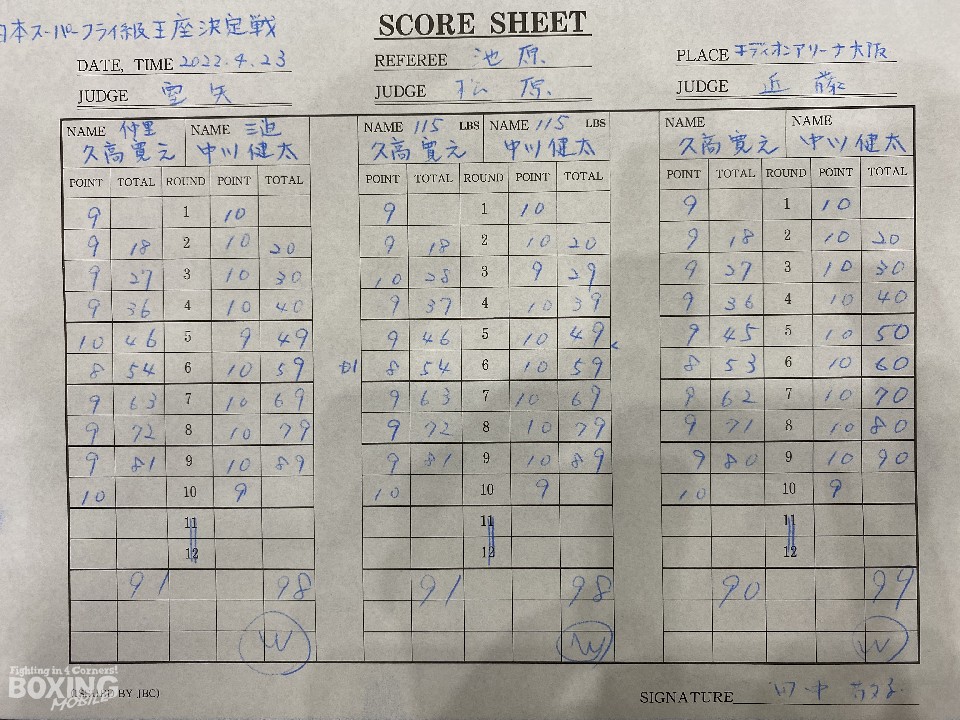 日本スーパーフライ級王座決定戦
SCORE SHEET
DATE, TIME 2022.4.23
REFEREE 池原
PLACE エディオンアリーナ大阪
JUDGE
JUDGE 松原
JUDGE 近藤
NAME 仲里 NAME 三迫 NAME 115 LBS NAME 115 LBS NAME NAME
久高寛元 中川健太 久高寛元 中川健太 久高寛元 中川健太
POINT TOTAL ROUND POINT TOTAL POINT TOTAL ROUND POINT TOTAL POINT TOTAL ROUND POINT TOTAL
9 1 10 9 1 10 9 1 10
9 18 2 10 20 9 18 2 10 20 9 18 2 10 20
9 27 3 10 30 10 28 3 9 29 9 27 3 10 30
9 36 4 10 40 9 37 4 10 39 9 36 4 10 40
10 46 5 9 49 9 46 5 10 49 9 45 5 10 50
8 54 6 10 59 8 54 6 10 59 8 53 6 10 60
9 63 7 10 69 9 63 7 10 69 9 62 7 10 70
9 72 8 10 79 9 72 8 10 79 9 71 8 10 80
9 81 9 10 89 9 81 9 10 89 9 80 9 10 90
10 10 9 10 10 9 10 10 9
11 11 11
12 12 12
91 98 91 98 90 99
W W W
Fighting in 4 Corners!
BOXING
MOBILE
(ISSUED BY JBC)
SIGNATURE 田中